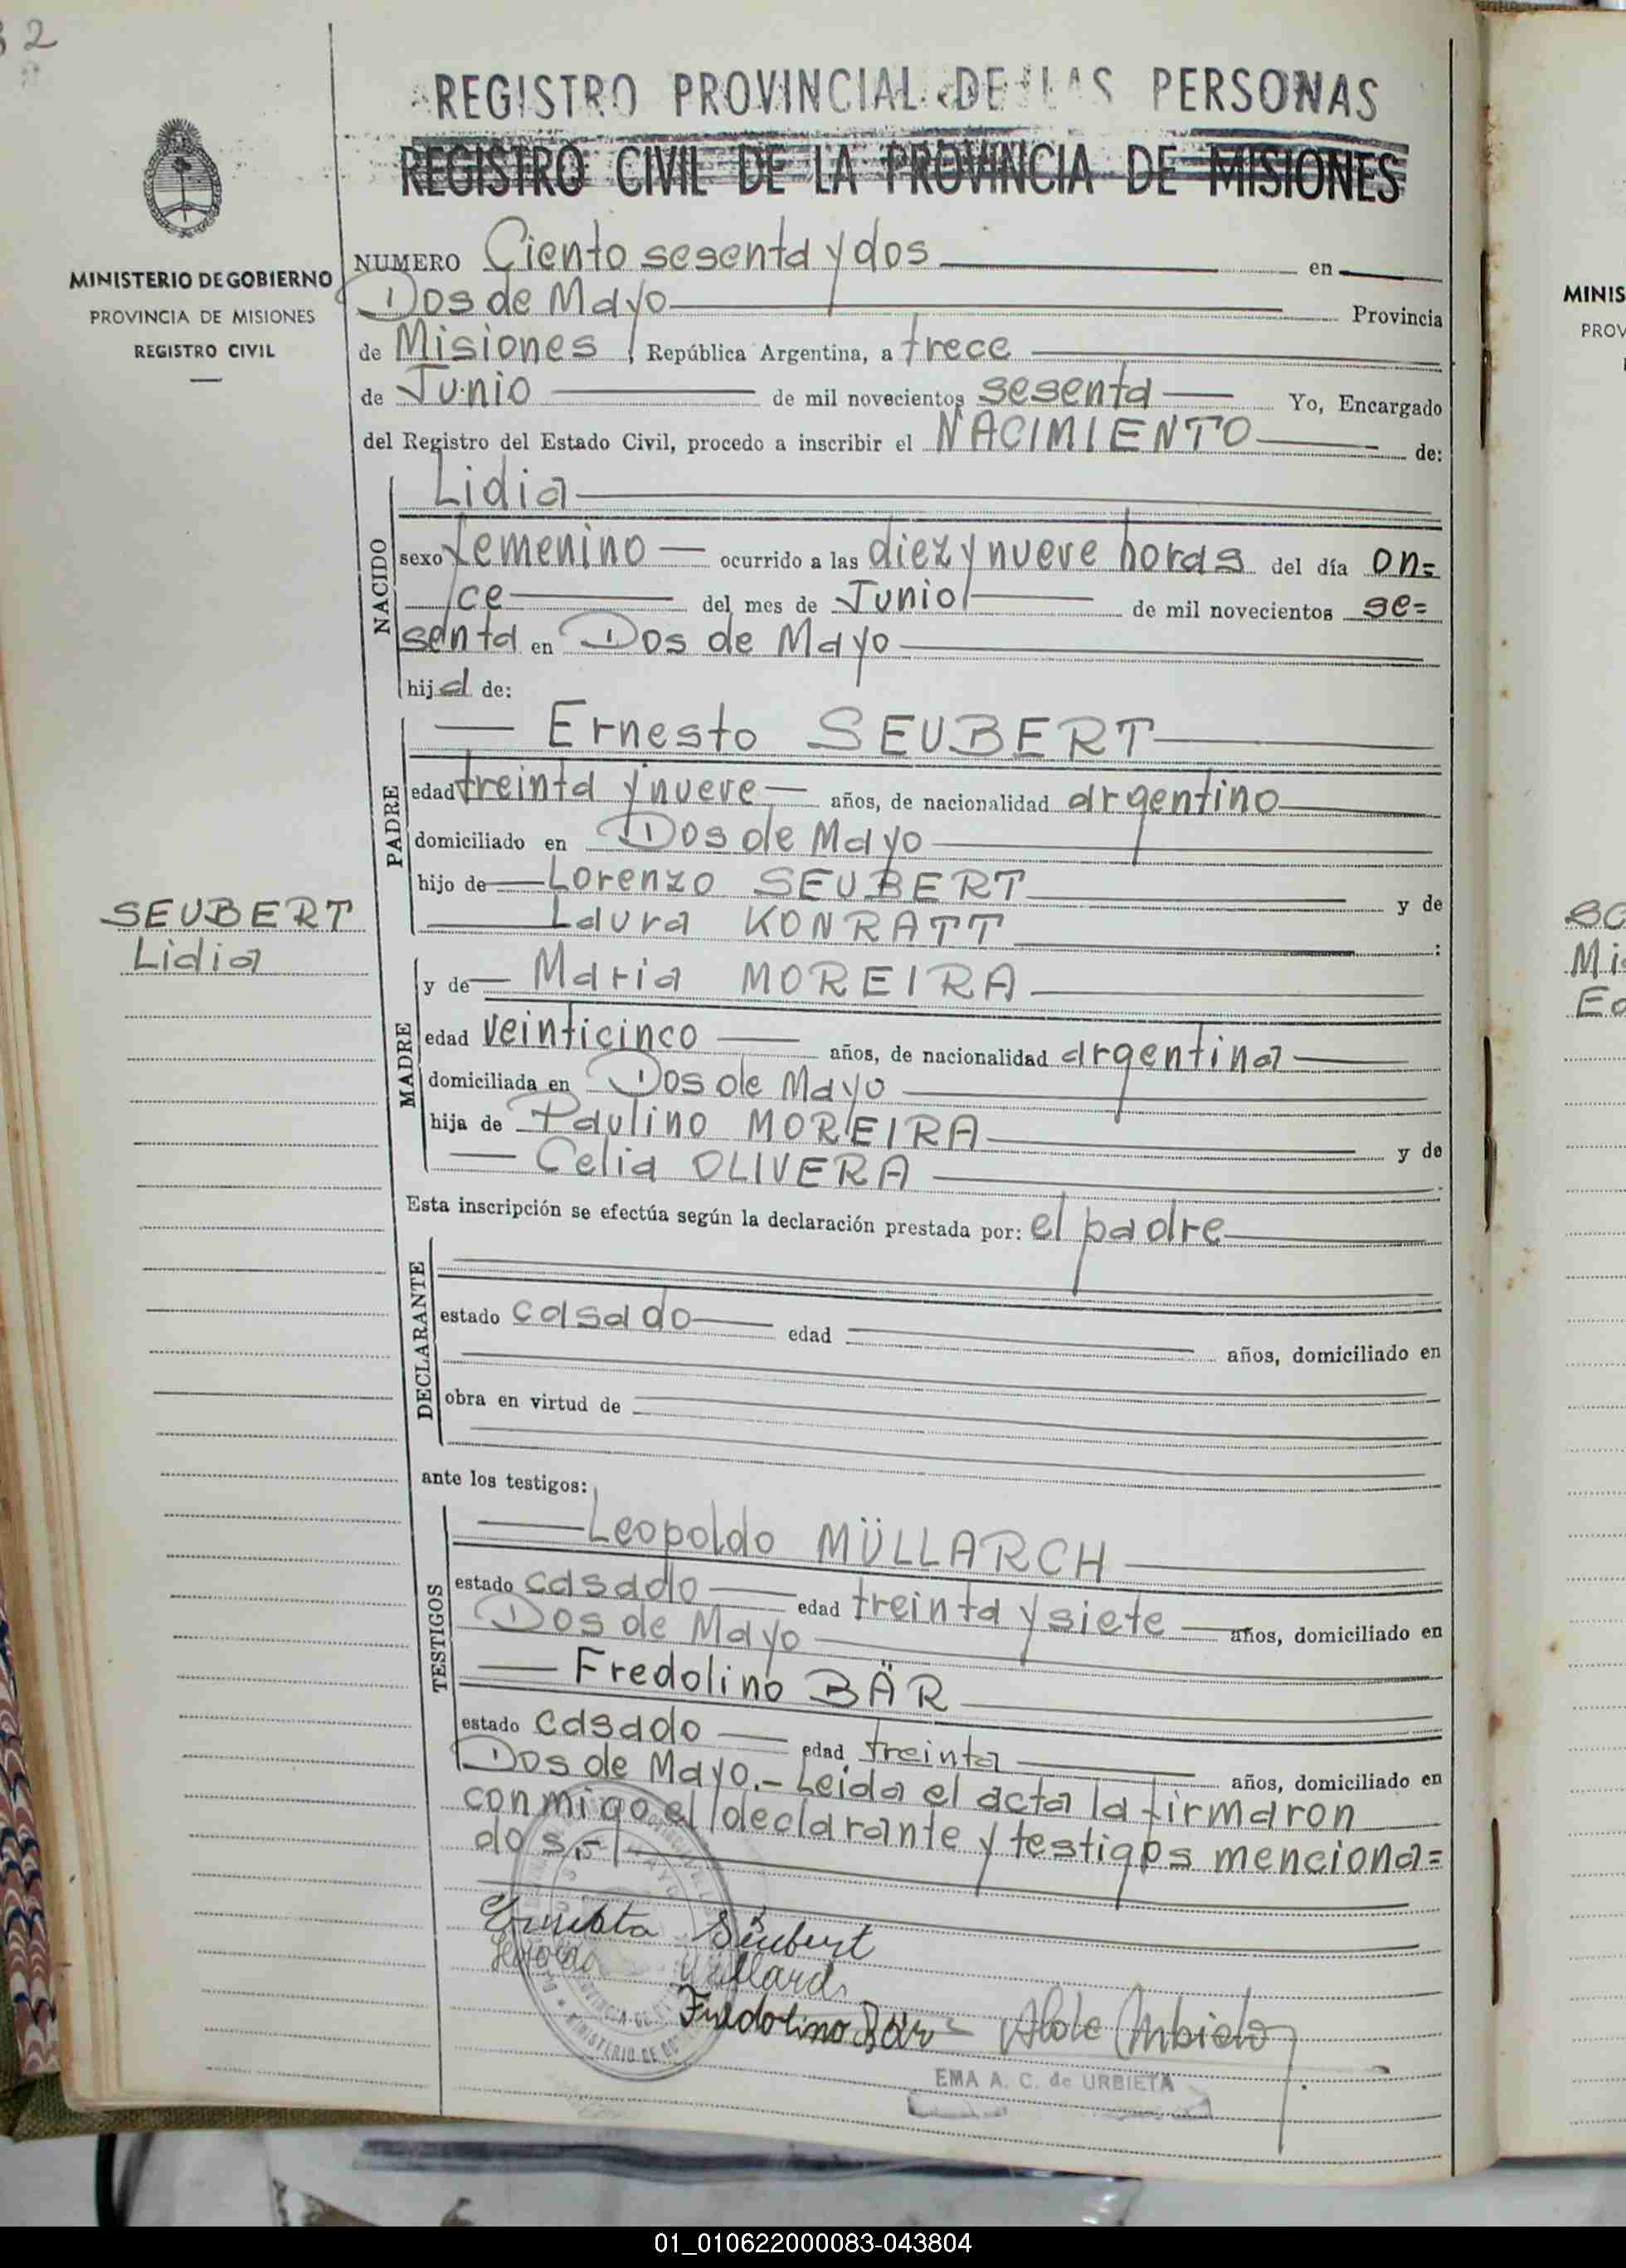 32
REGISTRO PROVINCIAL DE LAS PERSONAS
REGISTRO CIVIL DE LA PROVINCIA DE MISIONES
MINISTERIO DE GOBIERNO
PROVINCIA DE MISIONES
REGISTRO CIVIL
NUMERO Ciento sesenta y dos en
Dos de Mayo Provincia
de Misiones, República Argentina, a trece
de Junio de mil novecientos sesenta Yo, Encargado
del Registro del Estado Civil, procedo a inscribir el NACIMIENTO de:
NACIDO
Lidia
sexo femenino ocurrido a las diez y nueve horas del día on=
ce del mes de Junio de mil novecientos se=
senta en Dos de Mayo
hija de:
PADRE
Ernesto SEUBERT
edad treinta y nueve años, de nacionalidad argentino
domiciliado en Dos de Mayo
hijo de Lorenzo SEUBERT y de
Laura KONRATT :
SEUBERT
Lidia
MADRE
y de Maria MOREIRA
edad veinticinco años, de nacionalidad argentina
domiciliada en Dos de Mayo
hija de Paulino MOREIRA y de
Celia OLIVERA
Esta inscripción se efectúa según la declaración prestada por: el padre
DECLARANTE
estado casado edad años, domiciliado en
obra en virtud de
ante los testigos:
TESTIGOS
Leopoldo MÜLLARCH
estado casado edad treinta y siete años, domiciliado en
Dos de Mayo
Fredolino BÄR
estado casado edad treinta años, domiciliado en
Dos de Mayo.- Leida el acta la firmaron
conmigo el declarante y testigos menciona=
dos.-
Ernesto Seubert
Fredolino Bär
EMA A. C. de URBIETA
MINIS
PROV
Mi
01_010622000083-043804